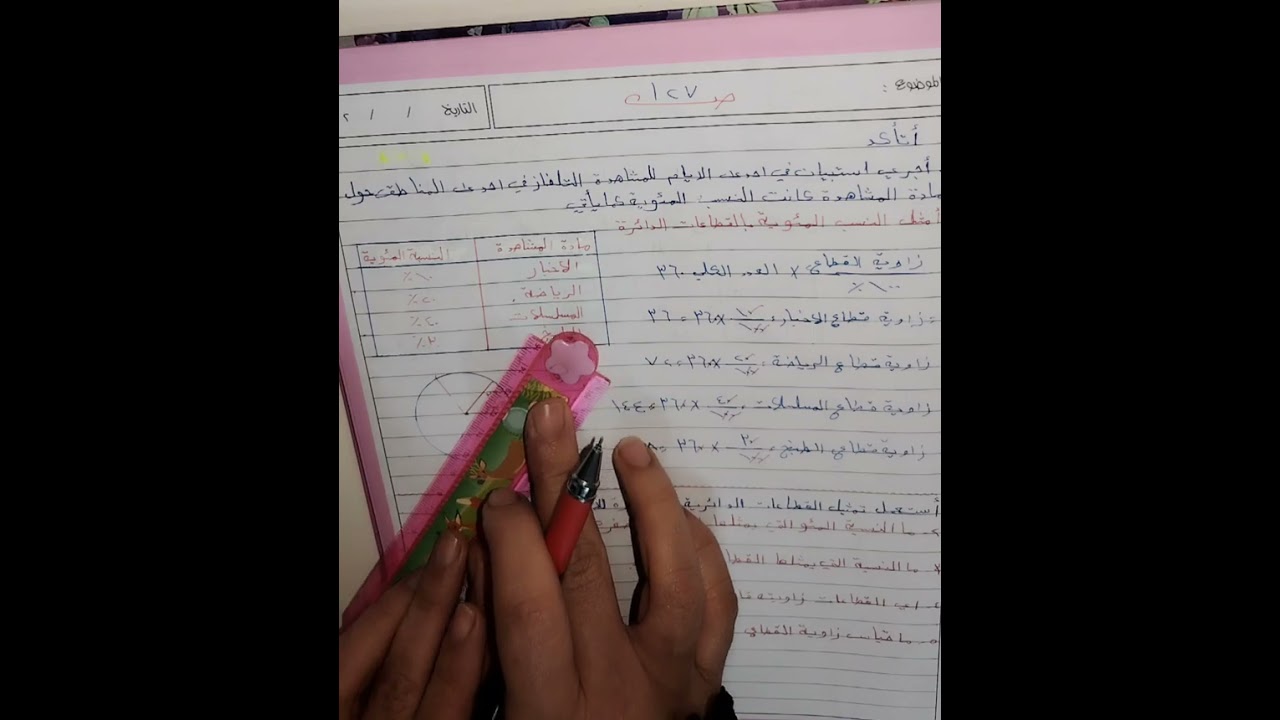 الموضوع :
ص ١٢٧
التارية / / ٢
أتأكد
أجري استبيان في احدى الايام للمشاهدة التلفاز في احدى المناطق حول
مادة المشاهدة كانت النسب المئوية كما يأتي
أمثل النسب المئوية بالقطاعات الدائرة
مادة المشاهدة النسبة المئوية
الأخبار ١٠٪
الرياضة ٢٠٪
المسلسلات
٢٠٪
زاوية القطاع / ١٠٠٪ × العدد الكلي ٣٦٠
زاوية قطاع الاخبار = ١٠/١٠٠ × ٣٦٠ = ٣٦
زاوية قطاع الرياضة = ٢٠/١٠٠ × ٣٦٠ = ٧٢
زاوية قطاع المسلسلات = ٤٠/١٠٠ × ٣٦٠ = ١٤٤
زاوية قطاع الطبخ = ٣٠/١٠٠ × ٣٦٠ =
أستعمل تمثيل القطاعات الدائرية
ما النسبة
ما النسبة التي يمثلها القطا
اي القطاعات زاويته قا
ما قياس زاوية القطاع